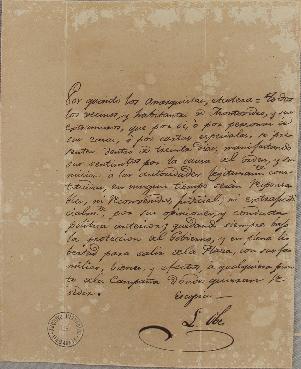 Por quanto los Anarquistas,
los vecinos, y habitantes de Montevideo, y sus
extramuros, que por sí, ó por personas de
sus casas, ó por cartas especiales, se pre-
senten dentro de treinta dias, manifestando
sus sentimientos por la causa del orden, y su-
mision a las autoridades legitimamte cons-
tituidas, en ningun tiempo sean responsa-
bles, ni reconvenidos judicial, ni extrajudi-
cialmte por sus opiniones, y conducta
politica anterior; quedando siempre bajo
la proteccion del Gobierno, y en plena li-
bertad para salir de la Plaza, con sus fa-
milias, bienes, y efectos, a qualquiera pun-
to de la Campaña donde quieran re-
sidir.
Es copia